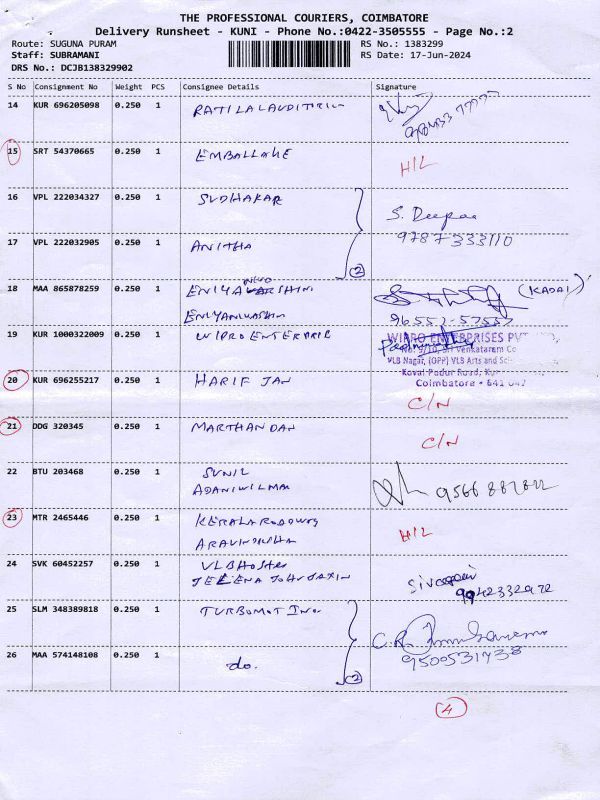 THE PROFESSIONAL COURIERS, COIMBATORE
Delivery Runsheet - KUNI - Phone No.:0422-3505555 - Page No.:2
Route: SUGUNA PURAM
RS No.: 1383299
Staff: SUBRAMANI
RS Date: 17-Jun-2024
DRS No.: DCJB138329902
S No Consignment No Weight PCS Consignee Details Signature
14 KUR 696205098 0.250 1
15 SRT 54370665 0.250 1 EMBALLAKE H/L
16 VPL 222034327 0.250 1 SUDHAKAR S. Deepa
17 VPL 222032905 0.250 1 ANITHA 9787333110
(2)
18 MAA 865878259 0.250 1 (KADAI)
96552-57557
19 KUR 1000322009 0.250 1 WIPRO ENTERPRIE
WIPRO ENTERPRISES PVT
No: 9/10, Sri Venkataram Co
VLB Nagar, (OPP) VLB Arts and Sci
Kovai Pudur Road, Ku
Coimbatore - 641 042
20 KUR 696255217 0.250 1 HARIF JAN C/N
21 DDG 320345 0.250 1 MARTHANDAN C/N
22 BTU 203468 0.250 1 SUNIL
ADANIWILMA
23 MTR 2465446 0.250 1 KERALA ROADWYS H/L
24 SVK 60452257 0.250 1 VLB Hostes
9942332972
25 SLM 348389818 0.250 1 TURBOMOT Inc.
9500531738
26 MAA 574148108 0.250 1 do.
(2)
4